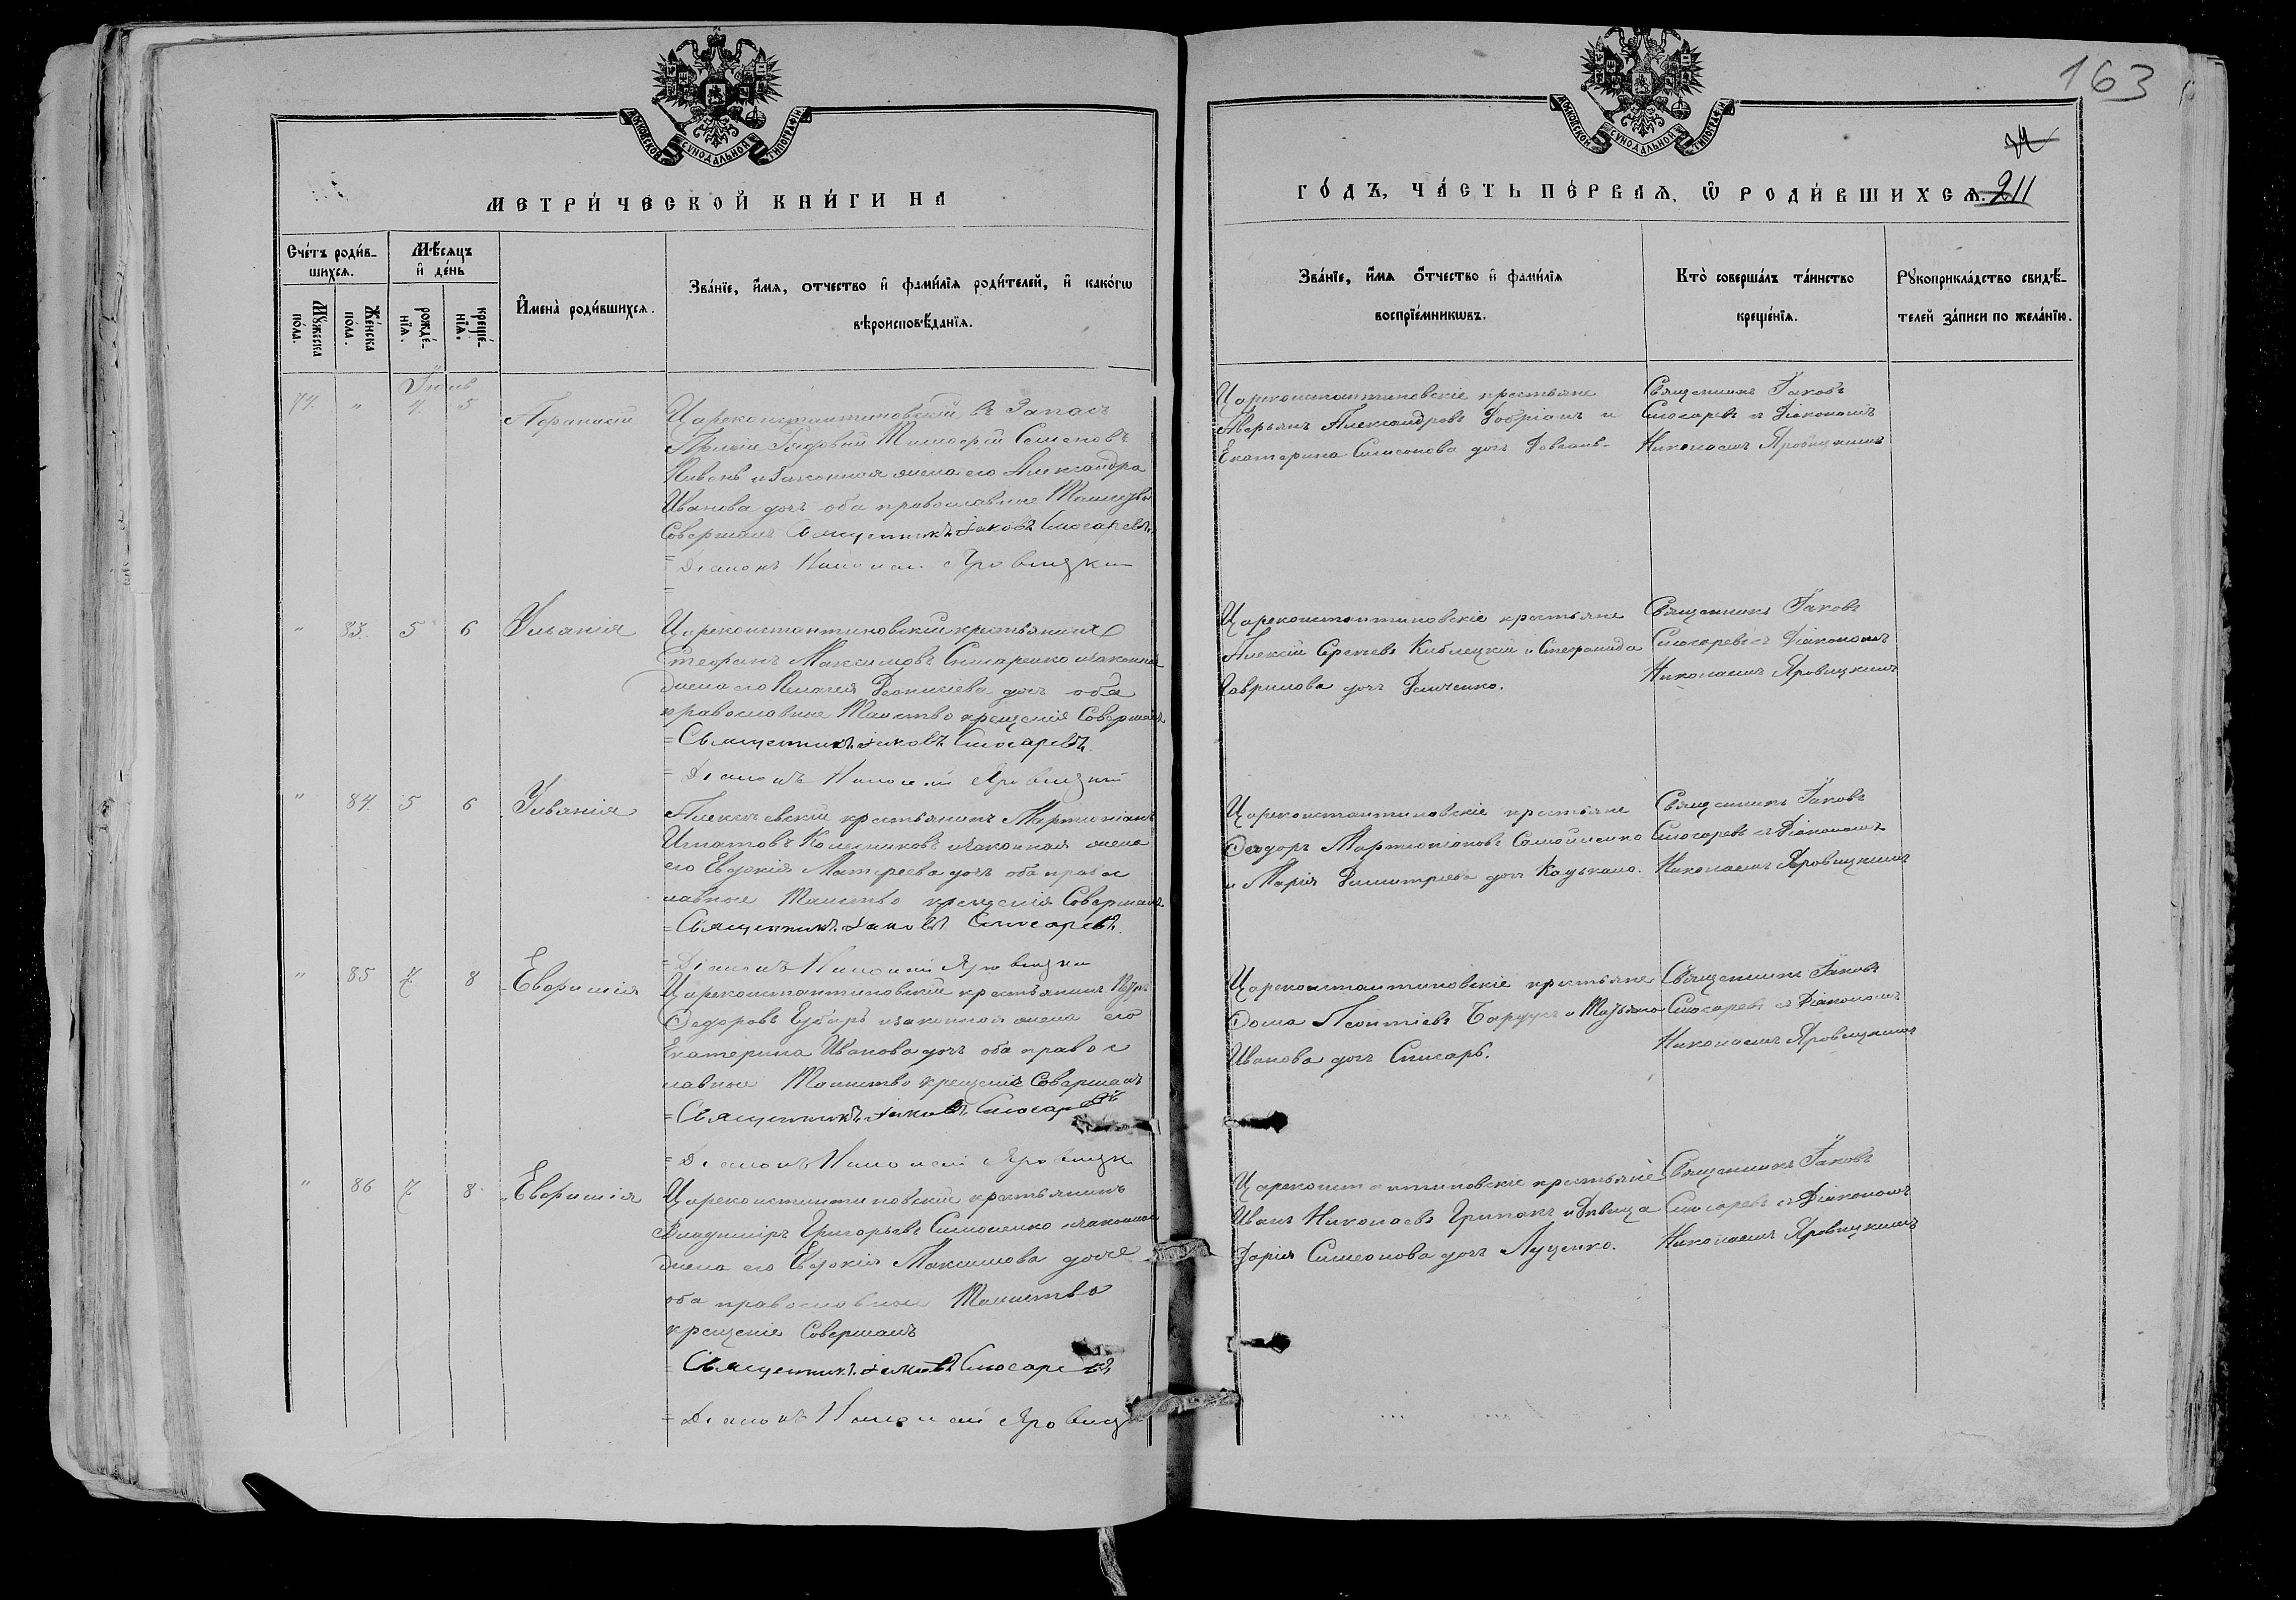 163
МОСКОВСКОЙ СѴНОДАЛЬНОЙ ТИПОГРАФІИ
МОСКОВСКОЙ СѴНОДАЛЬНОЙ ТИПОГРАФІИ
МЕТРИ́ЧЕСКОЙ КНИ́ГИ НА
ГО́ДЪ, ЧА́СТЬ ПЕ́РВАѦ, Ѡ РОДИ́ВШИХСѦ. 211
Сче́тъ роди́в-
шихсѧ.
Мꙋ́жеска
по́ла.
Же́нска
по́ла.
Мѣ́сѧцъ
и҆ де́нь
рожде́-
нїѧ.
креще́-
нїѧ.
И҆мена̀ роди́вшихсѧ.
Зва́нїе, и҆́мѧ, отчество и҆ фами́лїѧ роди́телей, и҆ како́гѡ
вѣроисповѣ́данїѧ.
Зва́нїе, и҆́мѧ о҆́тчество и҆ фами́лїѧ
воспрїе́мникѡвъ.
Кто̀ соверша́лъ та́инство
креще́нїѧ.
Рꙋкоприкла́дство свидѣ́-
телей за́писи по жела́нїю.
Іюнь
74. " 4. 5
Царекоистантиновскій въ Запасъ
Арміи Рядовой Тимофей Семеновъ
Пивень и законная жена его Александра
Иванова дочь оба православные
Совершалъ Священникъ Іаковъ Слюсаревъ
= Діаконъ Николай Яровицкій
Цареконстантиновскіе крестьяне
Аверьянъ Александровъ и
Екатерина Симеонова дочь
Священникъ Іаковъ
Слюсаревъ съ Діакономъ
Николаемъ Яровицкимъ
" 83. 5 6 Ульянія
Цареконстантиновскій крестьянинъ
Стефанъ Максимовъ Слюсаренко и законная
жена его Пелагея Деонисіева дочь оба
православные Таинство крещенія Совершалъ
= Священникъ Іаковъ Слюсаревъ
= Діаконъ Николай Яровицкій
Цареконстантиновскіе крестьяне
Алексій Сергіевъ Киблецкій и Стефанида
Гаврилова дочь Демченко.
Священникъ Іаковъ
Слюсаревъ съ Діакономъ
Николаемъ Яровицкимъ
" 84. 5 6 Ульянія
крестьянинъ Мартиніанъ
Игнатовъ Колесниковъ и законная жена
его Евдокія Матфеева дочь оба правос
лавные Таинство крещенія Совершалъ
= Священникъ Іаковъ Слюсаревъ.
= Діаконъ Николай Яровицкій
Цареконстантиновскіе крестьяне
Ѳеодоръ Мартиніановъ Самойленко
и Марія Димитріева дочь
Священникъ Іаковъ
Слюсаревъ съ Діакономъ
Николаемъ Яровицкимъ
" 85 7. 8 Евфимія
Цареконстантиновскій крестьянинъ
Ѳедоровъ и законная жена его
Екатерина Иванова дочь оба правос
лавные Таинство крещенія Совершалъ
= Священникъ Іаковъ Слюсаревъ
= Діаконъ Николай Яровицкій
Цареконстантиновскіе крестьяне
Ѳома Леонтіевъ и Татьяна
Иванова дочь Слюсарь.
Священникъ Іаковъ
Слюсаревъ съ Діакономъ
Николаемъ Яровицкимъ
" 86 7. 8 Евфимія
Цареконстантиновскій крестьянинъ
Владиміръ Григорьевъ и законная
жена его Евдокія Максимова дочь
оба православные Таинство
крещенія Совершалъ
= Священникъ Іаковъ Слюсаревъ
= Діаконъ Николай Яровицкій
Цареконстантиновскіе крестьяне
Иванъ Николаевъ и Дѣвица
Дарія Симеонова дочь Луценко.
Священникъ Іаковъ
Слюсаревъ съ Діакономъ
Николаемъ Яровицкимъ